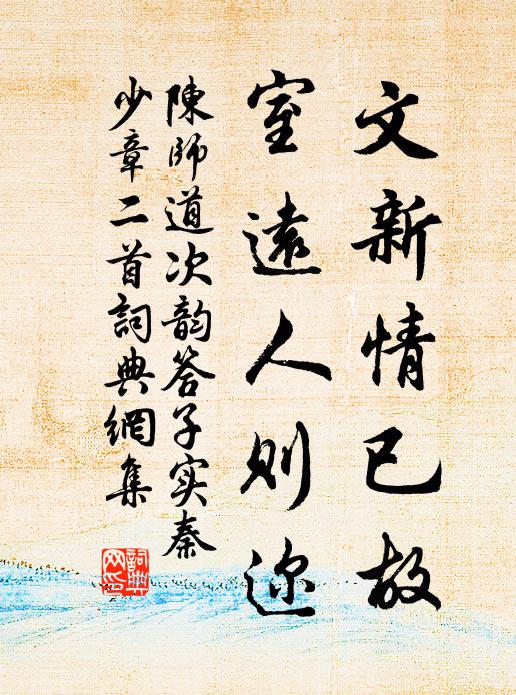 文新情已故
室遠人则迩
陳師道次韵答子实秦
少章二首詞典網集
詞典网印